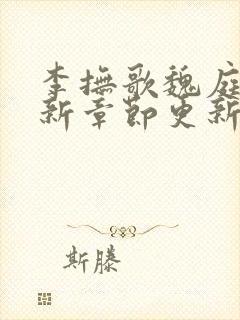 李撫歌魏庭
新章節更新
斯滕